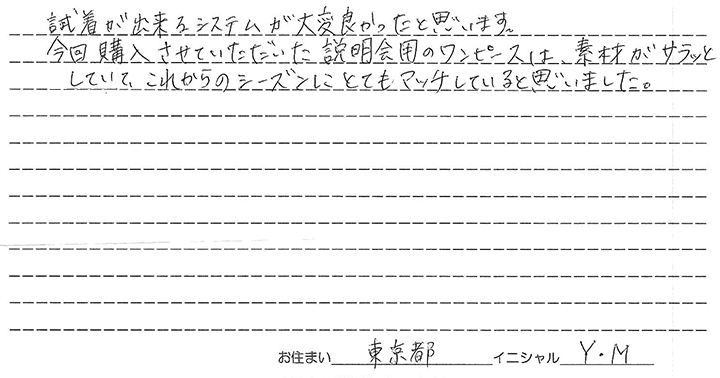 試着が出来るシステムが大変良かったと思います。
今回購入させていただいた説明会用のワンピースは、素材がサラッと
していて、これからのシーズンにとてもマッチしていると思いました。
お住まい 東京都 イニシャル Y・M